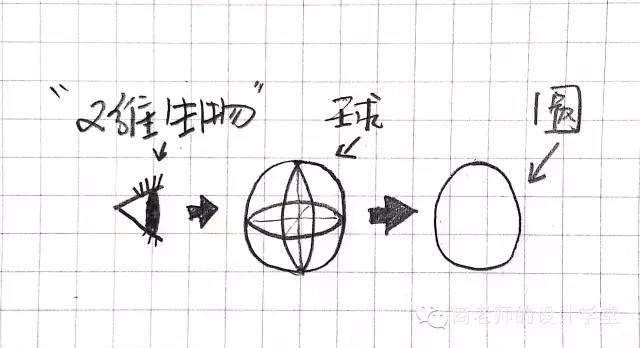 “2维生物”
球
圆
商老师的设计学堂